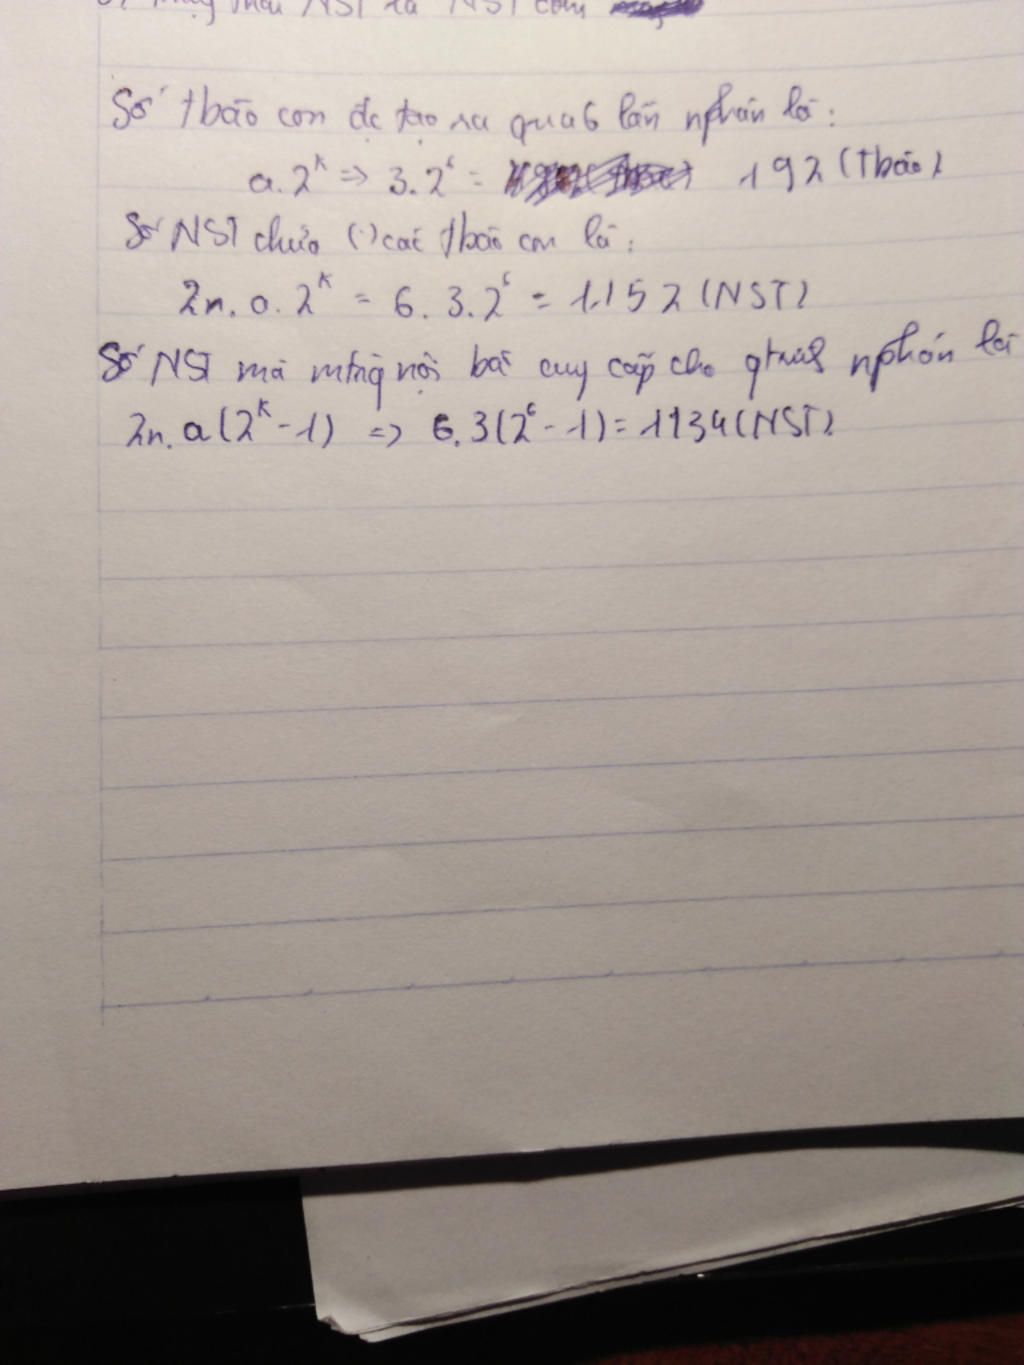 NST là NST com
Số tbão con đc tạo ra qua 6 lần nphân là:
a.2^k => 3.2^6 = 192 (tbào)
Số NST chứa (.) các tbào con là:
2n.a.2^k = 6.3.2^6 = 1.152 (NST)
Số NST mà mtrg nội bài cug cấp cho qtrình nphân là
2n.a(2^k-1) => 6.3(2^6-1)=1134(NST)